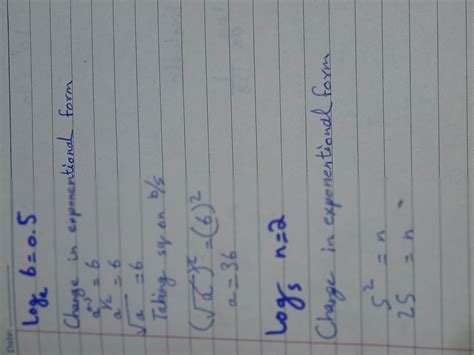 Date:
logₐ 6=0.5
Change in exponentional form
a^0.5 = 6
a^1/2 = 6
√a = 6
Taking sq on b/s
(√a)^2 = (6)^2
a = 36
log₅ n=2
Change in exponentional form
5^2 = n
25 = n